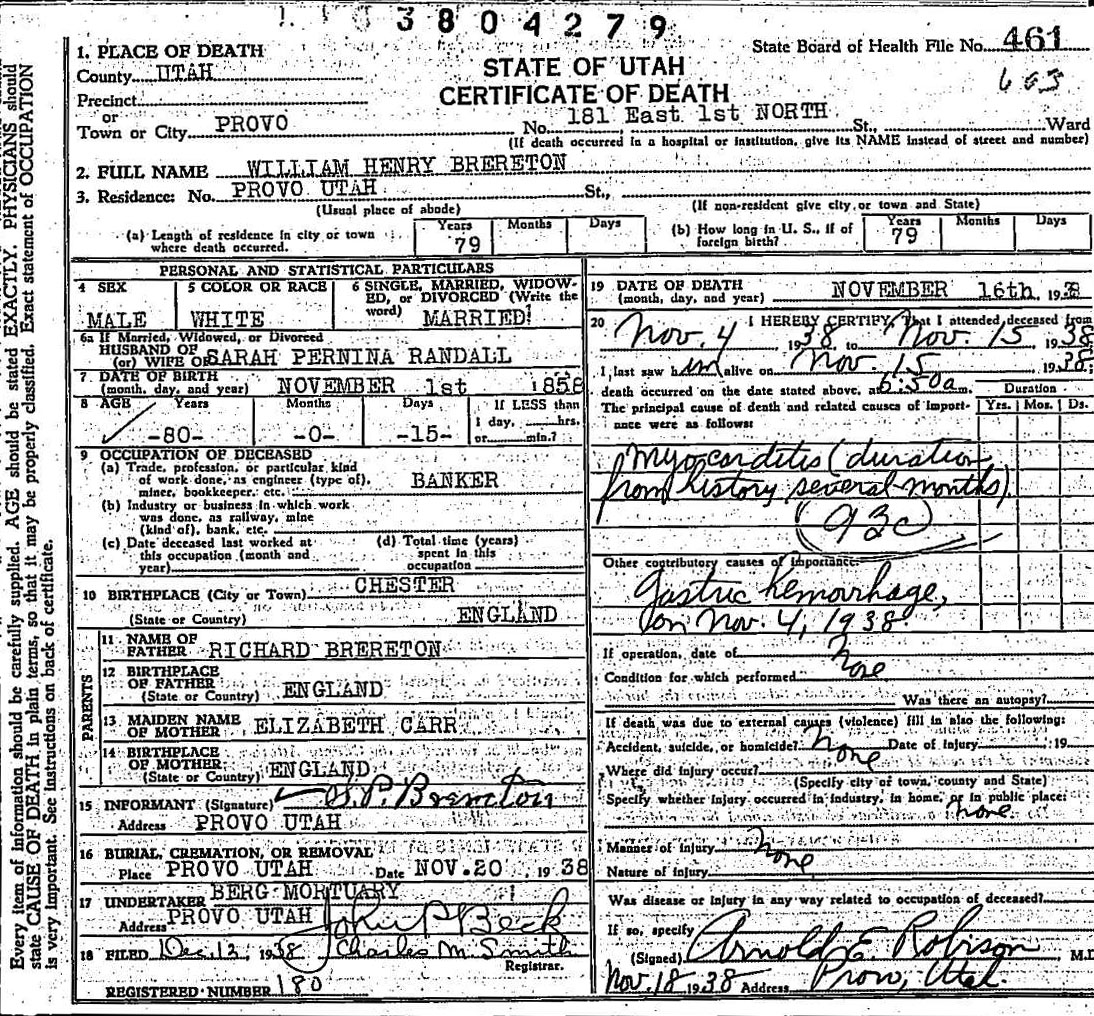 3804279
State Board of Health File No. 461
603
STATE OF UTAH
CERTIFICATE OF DEATH
1. PLACE OF DEATH
County UTAH
Precinct
or
Town or City PROVO No. 181 East 1st NORTH St., Ward
(If death occurred in a hospital or institution, give its NAME instead of street and number)
2. FULL NAME WILLIAM HENRY BRERETON
3. Residence: No. PROVO UTAH St.,
(Usual place of abode) (If non-resident give city or town and State)
(a) Length of residence in city or town where death occurred. Years 79 Months Days
(b) How long in U. S., if of foreign birth? Years 79 Months Days
PERSONAL AND STATISTICAL PARTICULARS
4 SEX MALE
5 COLOR OR RACE WHITE
6 SINGLE, MARRIED, WIDOWED, or DIVORCED (Write the word) MARRIED
6a If Married, Widowed, or Divorced
HUSBAND OF
(or) WIFE OF SARAH PERNINA RANDALL
7 DATE OF BIRTH
(month, day, and year) NOVEMBER 1st 1858
8 AGE Years Months Days If LESS than
-80- -0- -15- 1 day, hrs.
or min.?
9 OCCUPATION OF DECEASED
(a) Trade, profession, or particular kind
of work done, as engineer (type of), BANKER
miner, bookkeeper, etc.
(b) Industry or business in which work
was done, as railway, mine
(kind of), bank, etc.
(c) Date deceased last worked at
this occupation (month and
year)
(d) Total time (years)
spent in this
occupation
10 BIRTHPLACE (City or Town) CHESTER
(State or Country) ENGLAND
PARENTS
11 NAME OF
FATHER RICHARD BRERETON
12 BIRTHPLACE
OF FATHER
(State or Country) ENGLAND
13 MAIDEN NAME
OF MOTHER ELIZABETH CARR
14 BIRTHPLACE
OF MOTHER
(State or Country) ENGLAND
15 INFORMANT (Signature) S.P. Brereton
Address PROVO UTAH
16 BURIAL, CREMATION, OR REMOVAL
Place PROVO UTAH Date NOV.20 , 19 38
17 UNDERTAKER BERG MORTUARY
Address PROVO UTAH John P Beck
18 FILED Dec. 12, 1938 Charles M. Smith
Registrar.
REGISTERED NUMBER 180
19 DATE OF DEATH
(month, day, and year) NOVEMBER 16th, 1938
20 I HEREBY CERTIFY, That I attended deceased from
Nov. 4 1938, to Nov. 15 1938;
I last saw him alive on Nov. 15 1938;
death occurred on the date stated above, at 6:50a m.
Duration
The principal cause of death and related causes of importance were as follows: Yrs. Mos. Ds.
Myocarditis (duration
from history several months)
(93c)
Other contributory causes of importance:
Gastric hemorrhage,
on Nov. 4, 1938
If operation, date of None
Condition for which performed
Was there an autopsy?
If death was due to external causes (violence) fill in also the following:
Accident, suicide, or homicide? None Date of injury , 19
Where did injury occur?
(Specify city or town, county and State)
Specify whether injury occurred in industry, in home, or in public place:
none
Manner of injury None
Nature of injury
Was disease or injury in any way related to occupation of deceased?
If so, specify
(Signed) Arnold E. Robison , M.D.
Nov. 18 1938 Address Provo, Utah.
Every item of information should be carefully supplied. AGE should be stated EXACTLY. PHYSICIANS should
state CAUSE OF DEATH in plain terms, so that it may be properly classified. Exact statement of OCCUPATION
is very important. See instructions on back of certificate.